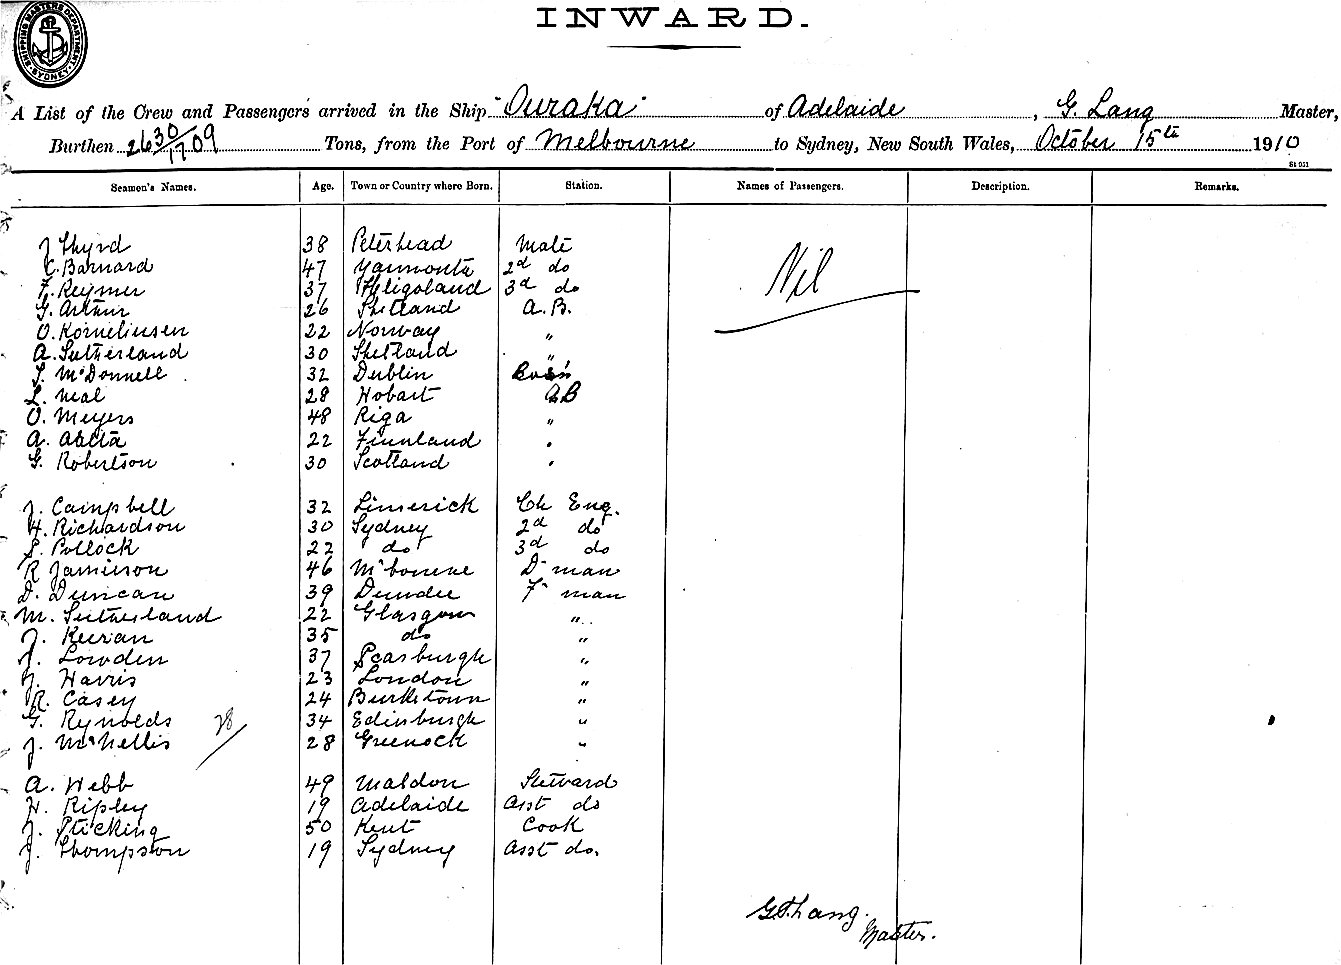 SHIPPING MASTERS DEPARTMENT
SYDNEY
INWARD.
A List of the Crew and Passengers arrived in the Ship "Ouraka" of Adelaide, G. Lang Master,
Burthen 2630/1709 Tons, from the Port of Melbourne to Sydney, New South Wales, October 15th 1910
St 051
Seamen's Names. Age. Town or Country where Born. Station. Names of Passengers. Description. Remarks.
J Thyrd 38 Peterhead Mate
Nil
C. Barnard 47 Yarmouth 2d do
F. Reymer 37 Heligoland 3d do
G. Arthur 26 Shetland A.B.
O. Korneliusen 22 Norway "
A. Sutherland 30 Shetland "
J. McDonnell 32 Dublin Bosn
L. Neal 28 Hobart AB
O. Meyers 48 Riga "
A. 22 Finnland "
G. Robertson 30 Scotland "
J. Campbell 32 Limerick Ch Eng.
H. Richardson 30 Sydney 2d do
P. Pollock 22 do 3d do
R Jamieson 46 M'bourne D-man
D. Duncan 39 Dundee F-man
M. Sutherland 22 Glasgow "
J. Keeran 35 do "
J. Lowden 37 "
J. Harris 23 London "
R. Casey 24 Burketown "
G. Reynolds 34 Edinburgh "
28
J. McNellis 28 Greenock "
A. Webb 49 Maldon Steward
H. Ripley 19 Adelaide Asst do
J. Sticking 50 Kent Cook
J. Thompson 19 Sydney Asst do.
G. Lang.
Master.